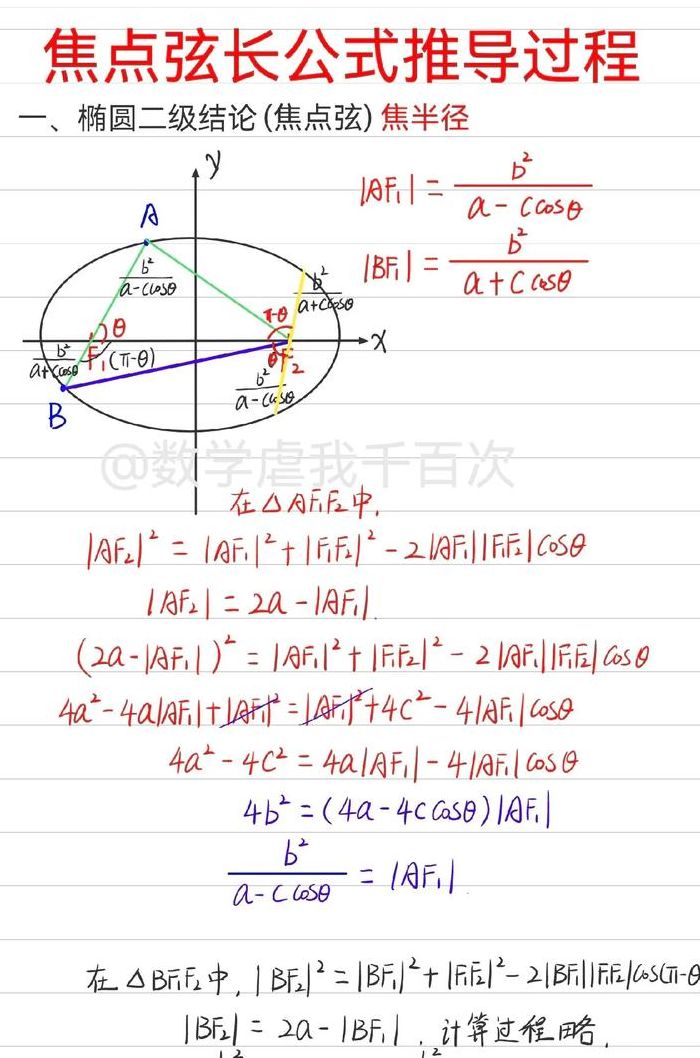 焦点弦长公式推导过程
一、椭圆二级结论(焦点弦)焦半径
y
|AF₁| = b²/(a - c cosθ)
A
|BF₁| = b²/(a + c cosθ)
b²/(a - c cosθ)
b²/(a + c cosθ)
π-θ
θ
x
b²/(a + c cosθ)
F₁ (π-θ)
θ F₂
b²/(a - c cosθ)
B
@数学虐我千百次
在△AF₁F₂中,
|AF₂|² = |AF₁|² + |F₁F₂|² - 2|AF₁||F₁F₂|cosθ
|AF₂| = 2a - |AF₁|.
(2a - |AF₁|)² = |AF₁|² + |F₁F₂|² - 2|AF₁||F₁F₂|cosθ
4a² - 4a|AF₁| + |AF₁|² = |AF₁|² + 4c² - 4|AF₁|cosθ
4a² - 4c² = 4a|AF₁| - 4|AF₁|cosθ
4b² = (4a - 4c cosθ)|AF₁|
b²/(a - c cosθ) = |AF₁|.
在△BF₁F₂中, |BF₂|² = |BF₁|² + |F₁F₂|² - 2|BF₁||F₁F₂|cos(π-θ
|BF₂| = 2a - |BF₁|. 计算过程略.